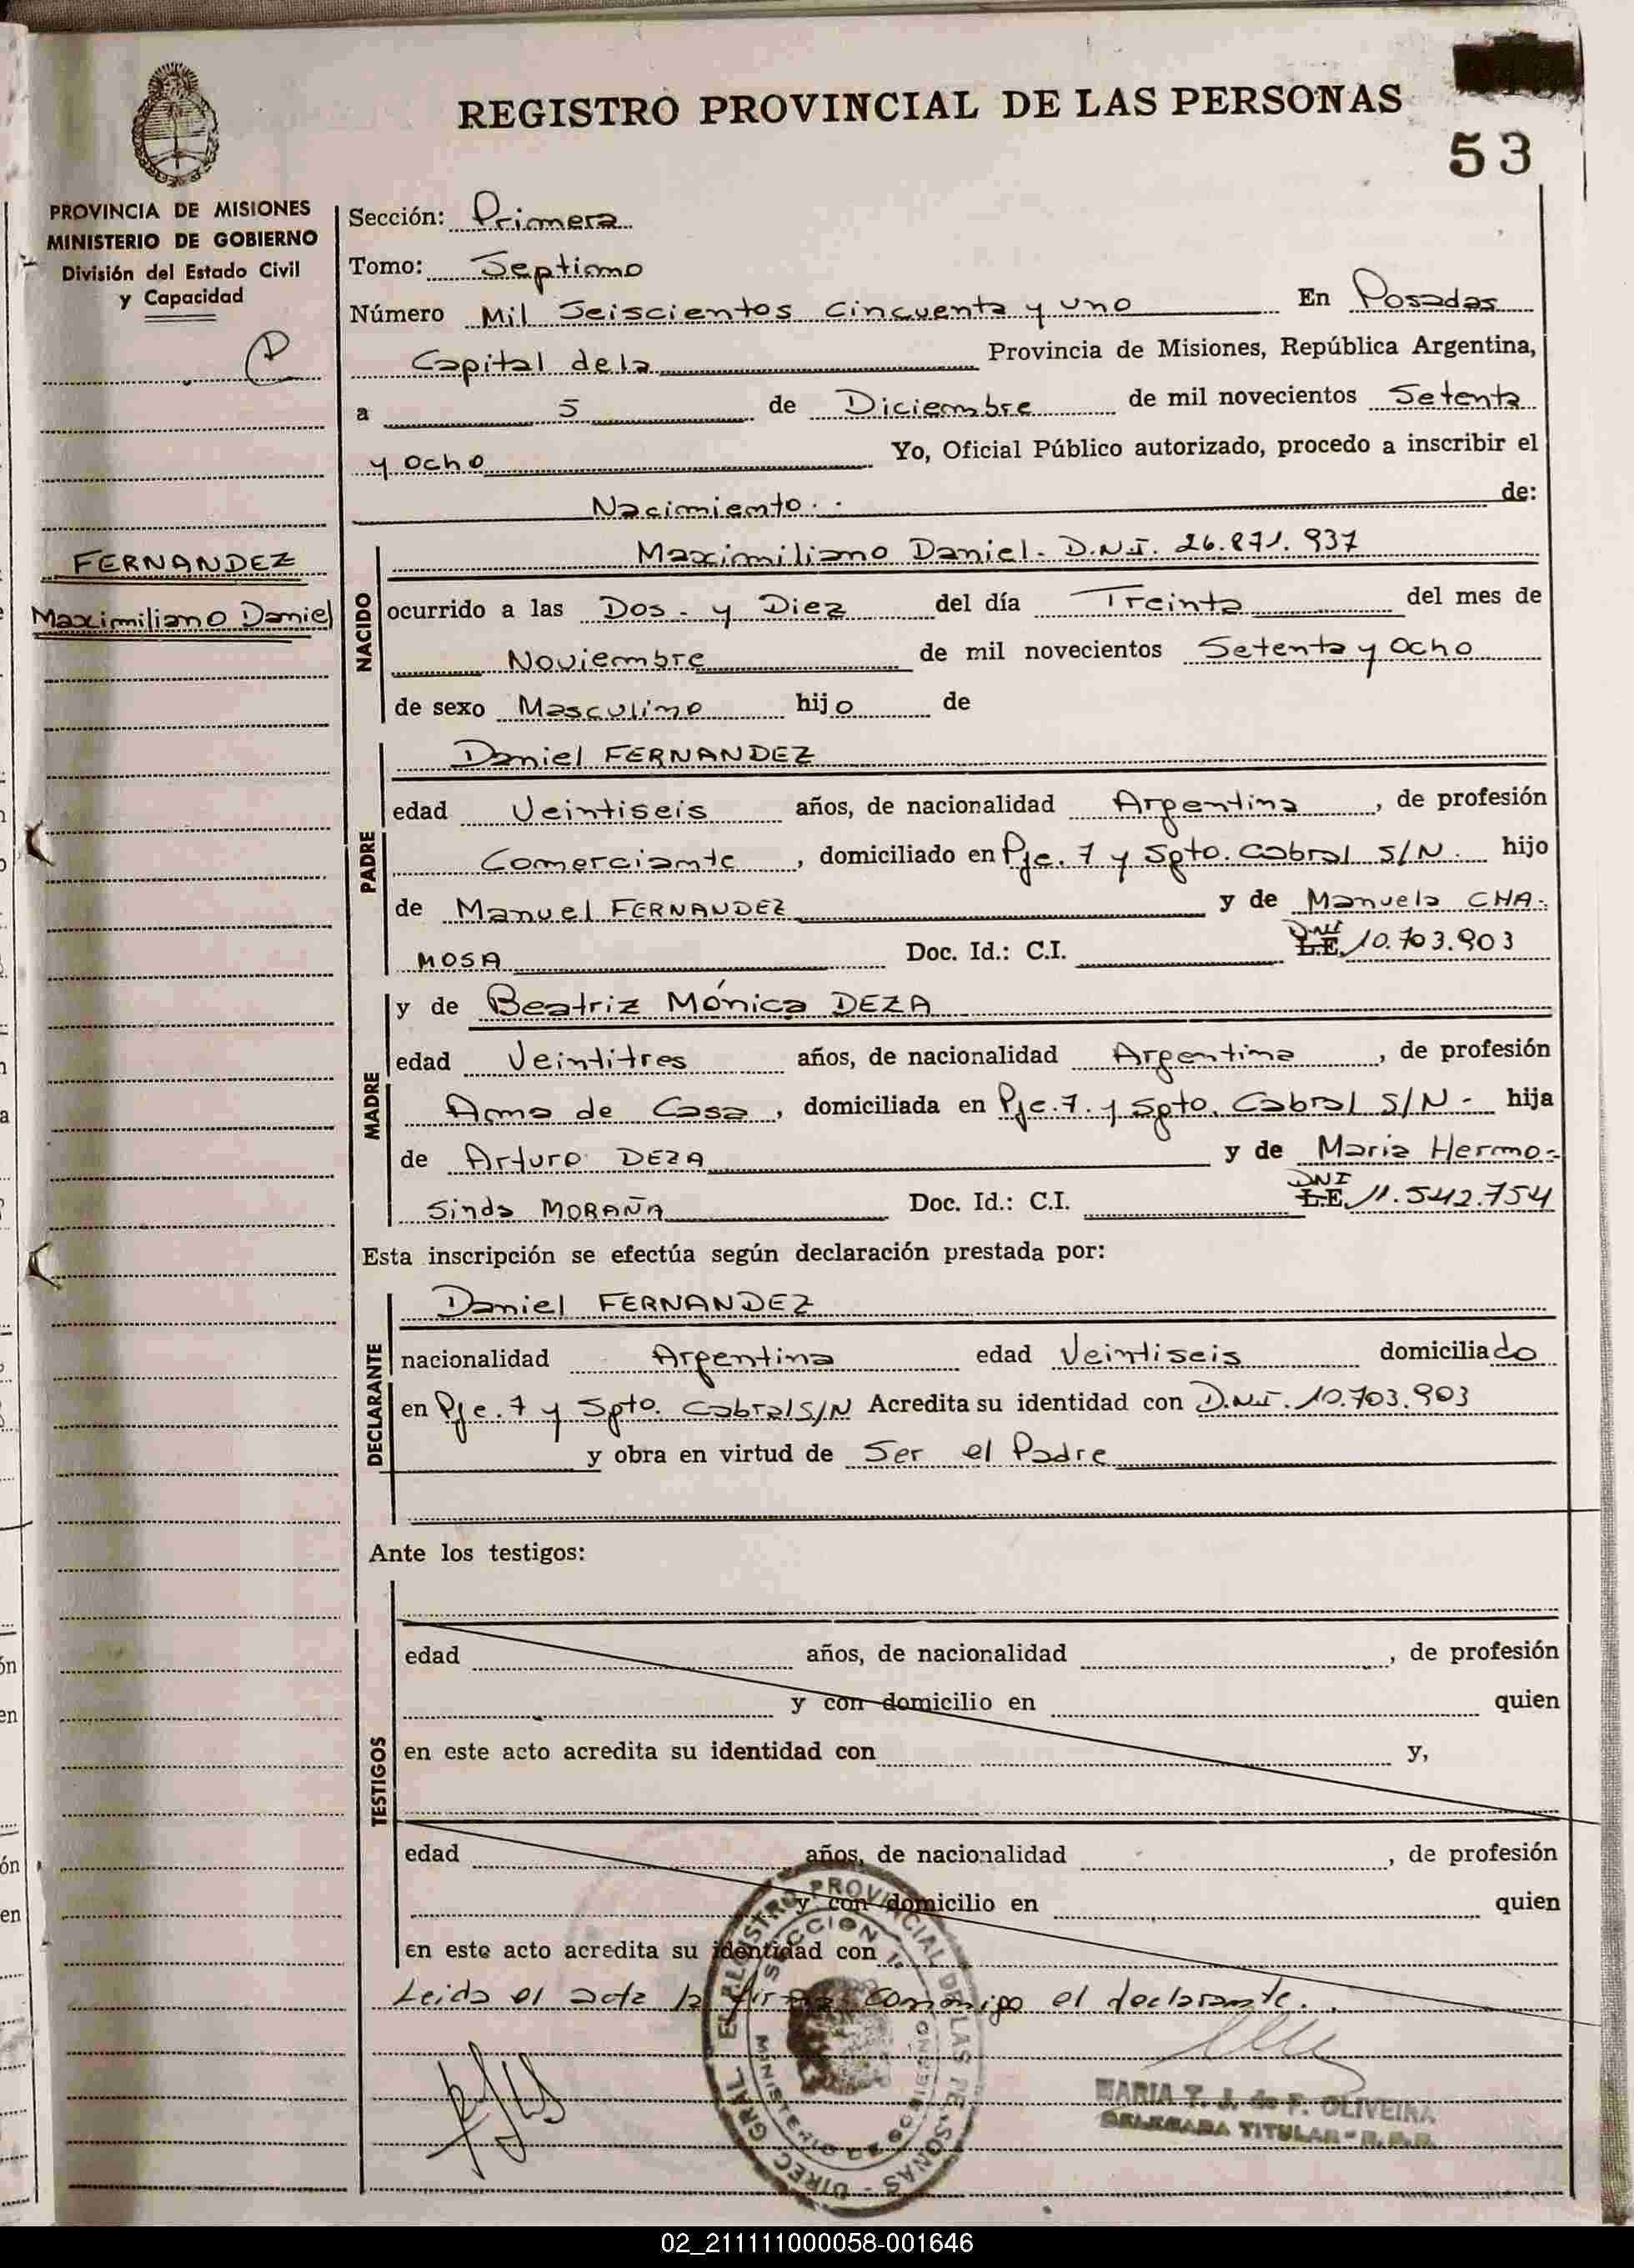 REGISTRO PROVINCIAL DE LAS PERSONAS
53
PROVINCIA DE MISIONES
MINISTERIO DE GOBIERNO
División del Estado Civil
y Capacidad
FERNANDEZ
Maximiliano Daniel
Sección: Primera
Tomo: Septimo
Número Mil Seiscientos cincuenta y uno En Posadas
Capital de la Provincia de Misiones, República Argentina,
a 5 de Diciembre de mil novecientos Setenta
y ocho Yo, Oficial Público autorizado, procedo a inscribir el
Nacimiento de:
NACIDO
Maximiliano Daniel- D.N.I. 26.871.937
ocurrido a las Dos - y Diez del día Treinta del mes de
Noviembre de mil novecientos Setenta y Ocho
de sexo Masculino hijo de
PADRE
Daniel FERNANDEZ
edad Veintiseis años, de nacionalidad Argentina, de profesión
Comerciante, domiciliado en Pje. 7 y Sgto. Cabral S/N. hijo
de Manuel FERNANDEZ y de Manuela CHA-
MOSA Doc. Id.: C.I. L.E. DNI 10.703.903
MADRE
y de Beatriz Mónica DEZA
edad Veintitres años, de nacionalidad Argentina, de profesión
Ama de Casa, domiciliada en Pje. 7 y Sgto. Cabral S/N - hija
de Arturo DEZA y de Maria Hermo-
sinda MORAÑA Doc. Id.: C.I. L.E. DNI 11.542.754
Esta inscripción se efectúa según declaración prestada por:
DECLARANTE
Daniel FERNANDEZ
nacionalidad Argentina edad Veintiseis domiciliado
en Pje. 7 y Sgto. Cabral S/N Acredita su identidad con D.N.I. 10.703.903
y obra en virtud de Ser el Padre
Ante los testigos:
TESTIGOS
edad años, de nacionalidad , de profesión
y con domicilio en quien
en este acto acredita su identidad con y,
edad años, de nacionalidad , de profesión
y con domicilio en quien
en este acto acredita su identidad con
Leida el acta la firma conmigo el declarante.
DIREC. GRAL. EL REGISTRO PROVINCIAL DE LAS PERSONAS
SECCION 1ª
MINISTERIO DE GOBIERNO
MARIA T. J. de F. OLIVEIRA
DELEGADA TITULAR - R.P.P.
02_211111000058-001646